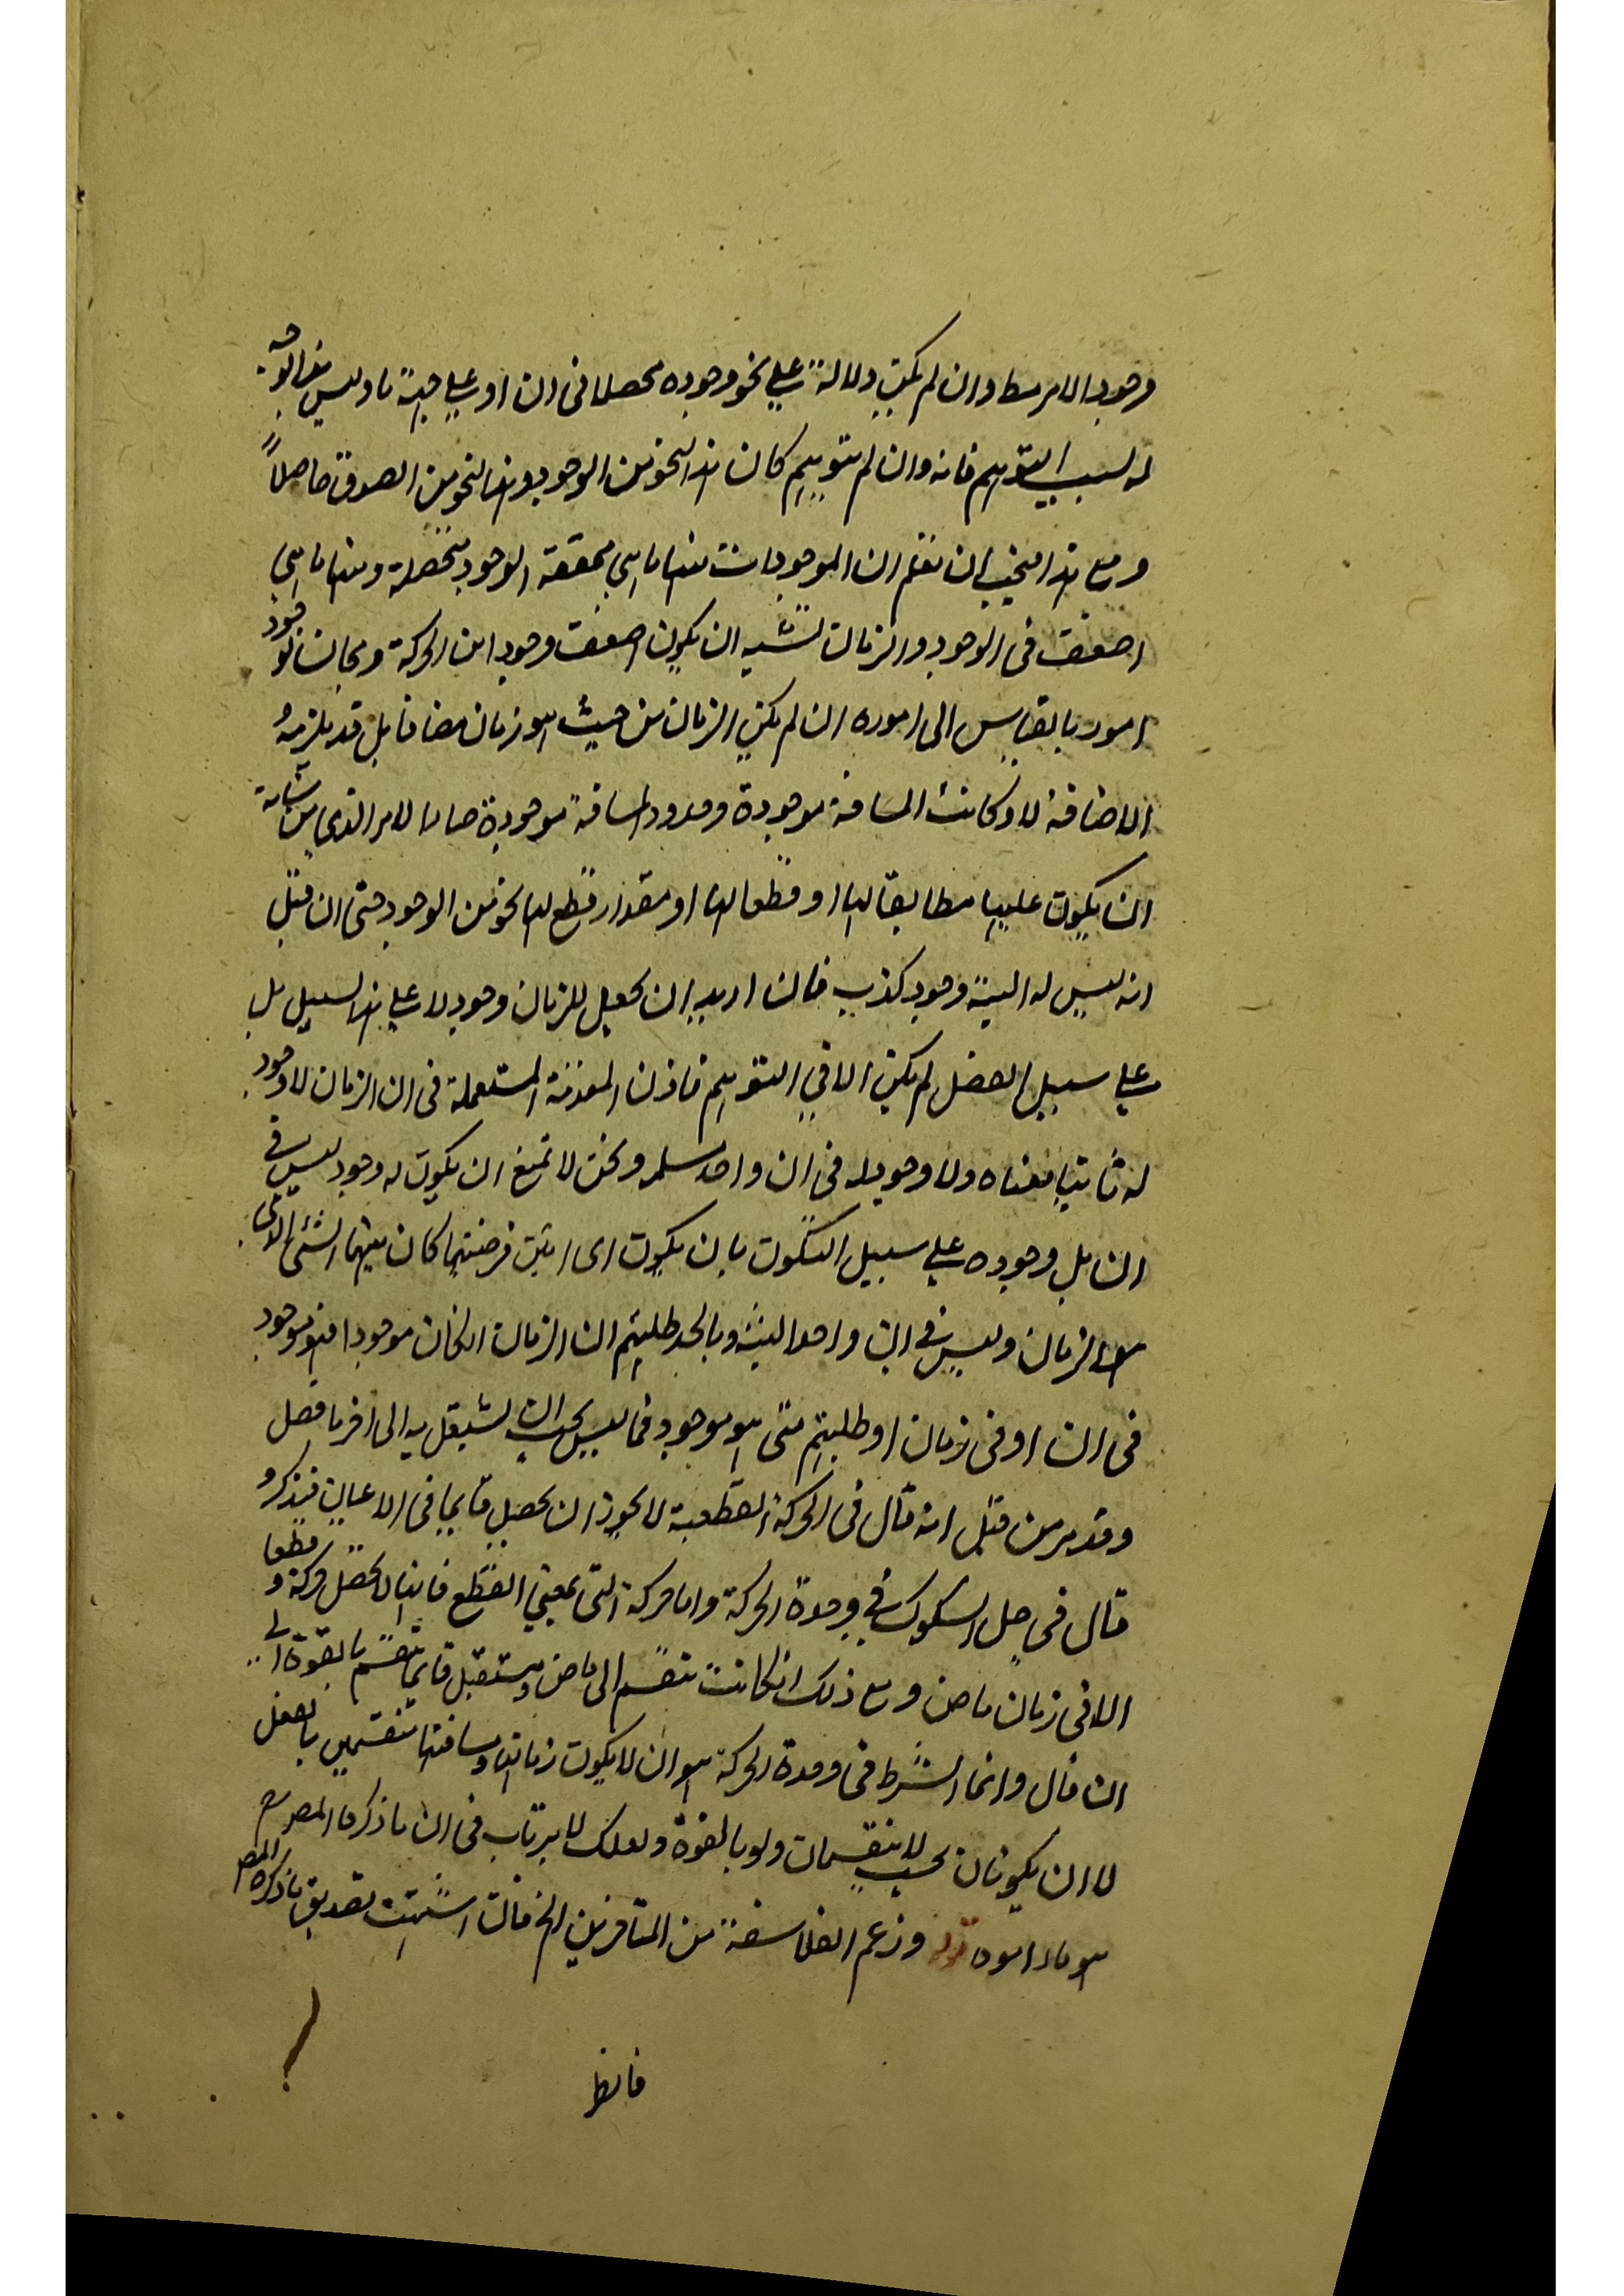 وجود الامر مطا وان لم يكن دلالة على نحو وجوده محصلا فى ان او على جهة ما وليس هذا الوجه
له لسبب التوهم فانه وان لم يتوهم كان هذا النحو من الوجود وهذا النحو من الصدق حاصلاً
ومع هذا فيجب ان تعلم ان الموجودات منها ما هي محققة الوجود محصلة ومنها ما هي
اضعف فى الوجود والزمان يشبه ان يكون اضعف وجودا من الحركة ومجانسا لوجود
امور بالقياس الى امور وان لم يكن الزمان من حيث هو زمان مضافا بل قد يلزمه
الاضافة ولو كانت المسافة موجودة وحدود المسافة موجودة صار الامر الذي من شانه
ان يكون عليها مطابقا لها او قطعا لها او مقدار قطع لها نحو من الوجود حتى ان قيل
انه ليس له البتة وجود كذب فان اريد ان يجعل للزمان وجود لا على هذا السبيل بل
على سبيل التحصل لم يكن الا في التوهم فاذن المقدمة المستعملة فى ان الزمان لا وجود
له ثابتا معناه ولا وجود له فى ان واحد مسلمة ونحن لا نمنع ان يكون له وجود ليس في
ان بل وجوده على سبيل التكون بان يكون اى انين فرضتهما كان بينهما الشئ الذى
هو الزمان وليس في ان واحد البتة وبالجملة طلبهم ان الزمان ان كان موجودا فهو موجود
فى ان او فى زمان او طلبهم متى هو موجود فما ليس يجب ان يشتغل به الى اخر ما فصل
وقد مر من قبل انه قال فى الحركة القطعية لا يجوز ان يحصل قائما فى الاعيان فيذكر و
قال فى حل الشكوك في وحدة الحركة واما حركة التى بمعني القطع فانها لا تحصل حركة و قطعا
الا فى زمان ماض ومع ذلك ان كانت تنقسم الى ماض ومستقبل فانما تنقسم بالقوة الى
ان قال وانما الشرط فى وحدة الحركة هو ان لا يكون زمانها ومسافتها منقسمين بالفعل
لا ان يكونان بحيث لا ينقسمان ولو بالقوة ولعلك لا ترتاب فى ان ما ذكره المصرح
هو مراد قوله وزعم الفلاسفة من المتاخرين الخ فان اشتهيت تصديق ما ذكره المص
فانظر